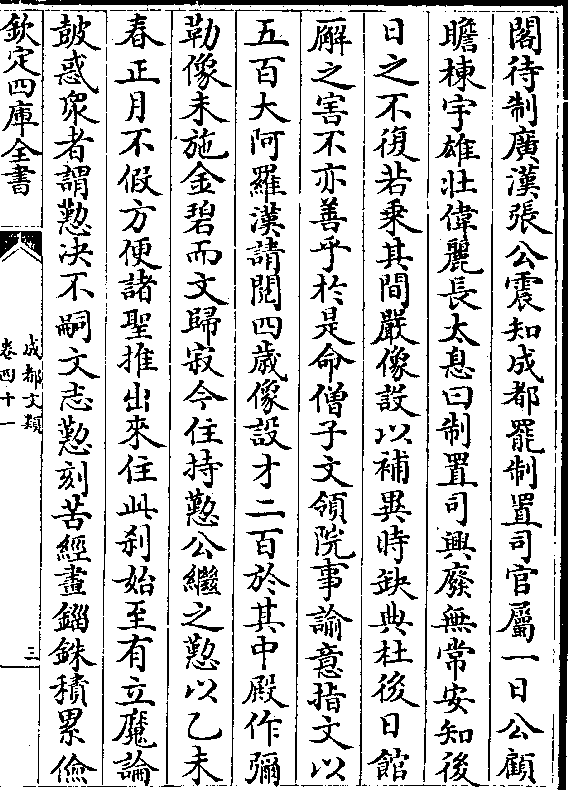 閣待制廣漢張公震知成都罷制置司官屬一日公顧
瞻棟宇雄壯偉麗長太息曰制置司興廢無常安知後
日之不復若乘其間嚴像設以補異時缺典杜後日館
廨之害不亦善乎於是命僧子文領院事諭意指文以
五百大阿羅漢請閱四歲像設才二百於其中殿作彌
勒像未施金碧而文歸寂今住持懃公繼之懃以乙未
春正月不假方便諸聖推出來住此刹始至有立魔論
皷惑衆者謂懃决不嗣文志懃刻苦經畫錙銖積累儉
欽定四庫全書
成都文類
卷四十一
三